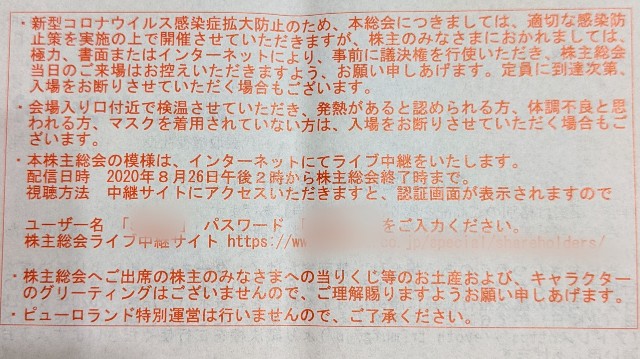 ・新型コロナウイルス感染症拡大防止のため、本総会につきましては、適切な感染防
止策を実施の上で開催させていただきますが、株主のみなさまにおかれましては、
極力、書面またはインターネットにより、事前に議決権を行使いただき、株主総会
当日のご来場はお控えいただきますよう、お願い申しあげます。定員に到達次第、
入場をお断りさせていただく場合もございます。
・会場入り口付近で検温させていただき、発熱があると認められる方、体調不良と思
われる方、マスクを着用されていない方は、入場をお断りさせていただく場合もご
ざいます。
・本株主総会の模様は、インターネットにてライブ中継をいたします。
配信日時　2020年8月26日午後2時から株主総会終了時まで。
視聴方法　中継サイトにアクセスいただきますと、認証画面が表示されますので
ユーザー名「　」パスワード　をご入力ください。
株主総会ライブ中継サイト https://w
・株主総会へご出席の株主のみなさまへの当りくじ等のお土産および、キャラクター
のグリーティングはございませんので、ご理解賜りますようお願い申しあげます。
・ピューロランド特別運営は行いませんので、ご了承ください。